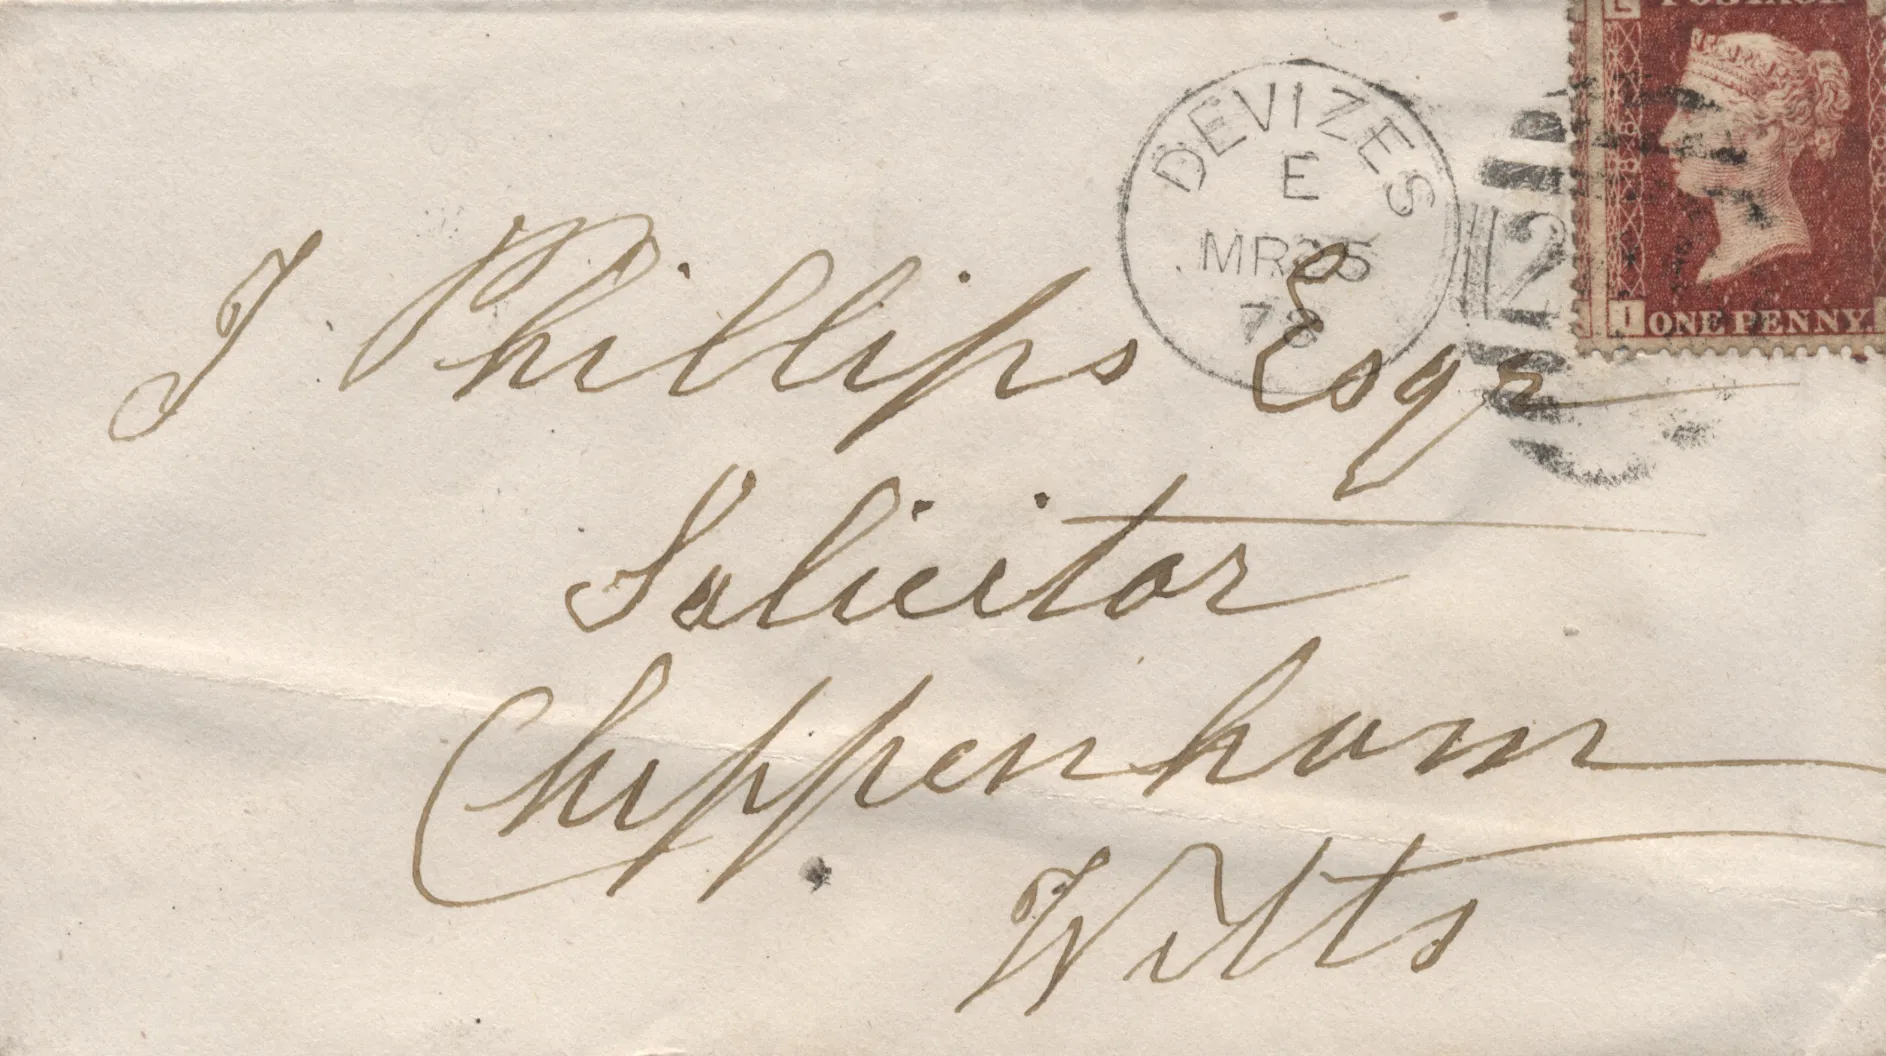 POSTAGE
L
DEVIZES
E
MR 25
78
2
I ONE PENNY.
J. Phillips Esqr
Solicitor
Chippenham
Wilts